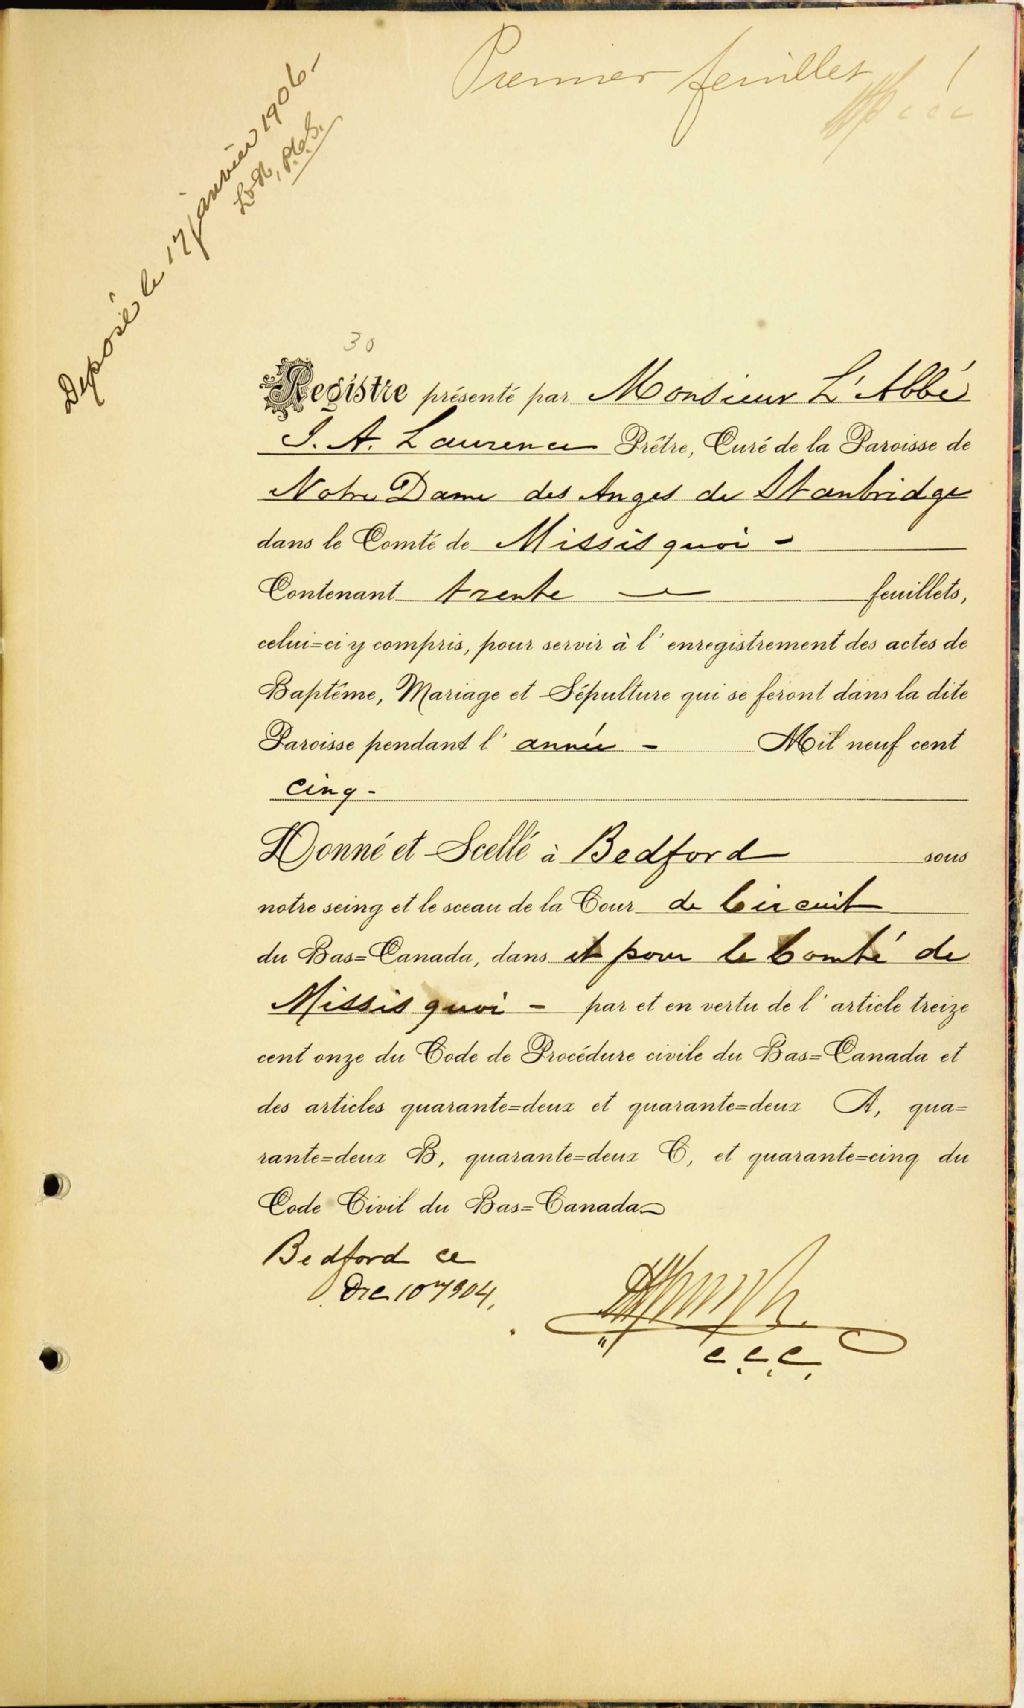 Premier feuillet
Déposé le 17 janvier 1906-
30
Registre présenté par Monsieur L'Abbé
J. A. Laurence Prêtre, Curé de la Paroisse de
Notre Dame des Anges de Stanbridge
dans le Comté de Missisquoi -
Contenant trente — feuillets,
celui=ci y compris, pour servir à l'enregistrement des actes de
Baptême, Mariage et Sépulture qui se feront dans la dite
Paroisse pendant l'année - Mil neuf cent
cinq -
Donné et Scellé à Bedford sous
notre seing et le sceau de la Cour de Circuit
du Bas=Canada, dans et pour le Comté de
Missisquoi - par et en vertu de l'article treize
cent onze du Code de Procédure civile du Bas=Canada et
des articles quarante=deux et quarante=deux A, qua=
rante=deux B, quarante=deux C, et quarante=cinq du
Code Civil du Bas=Canada
Bedford ce
Dec 10 1904.
C.C.C.